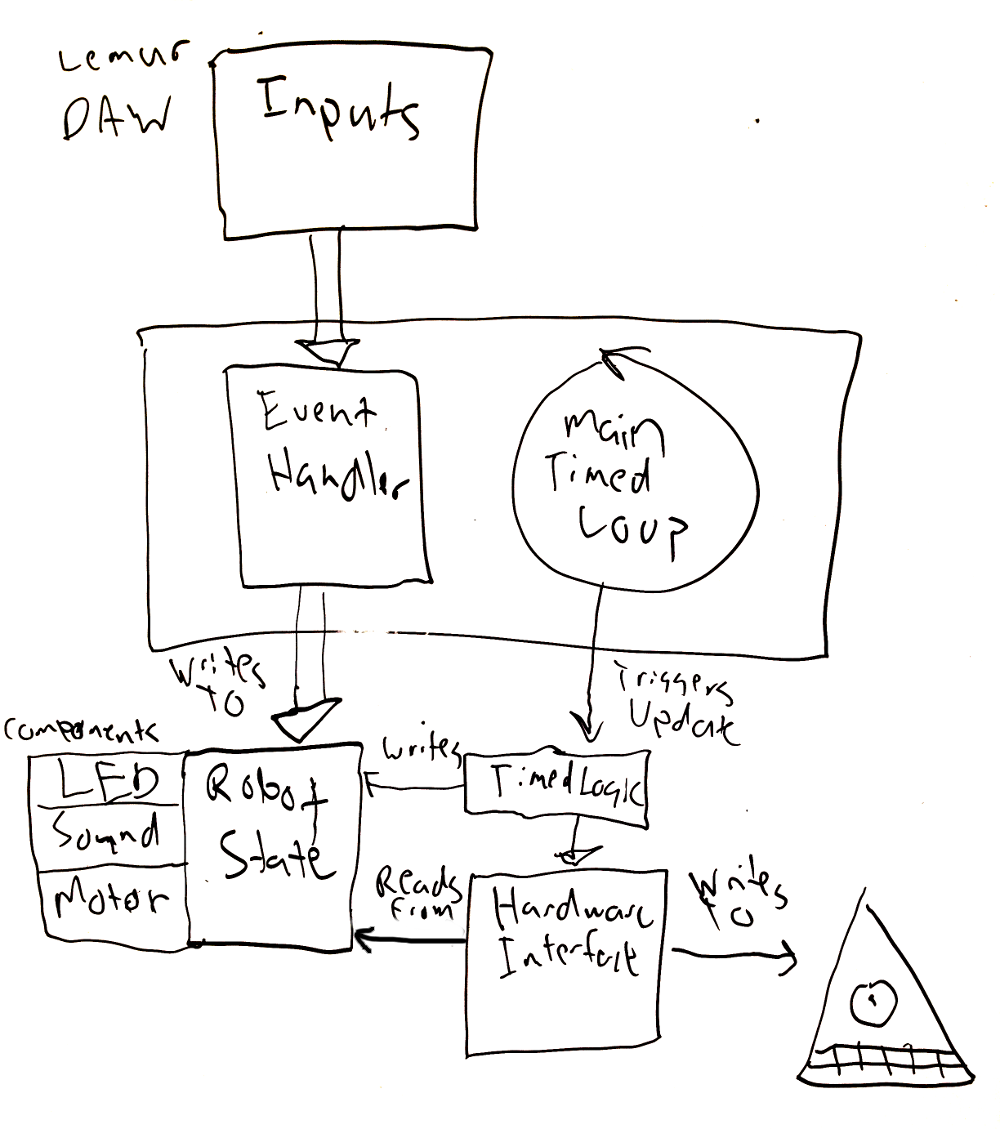 Lemur
DAW
Inputs
Event
Handler
Main
Timed
Loop
Writes
To
Triggers
Update
Components
LED
Sound
Motor
Robot
State
Writes
Timed Logic
Reads
From
Hardware
Interface
Writes
To